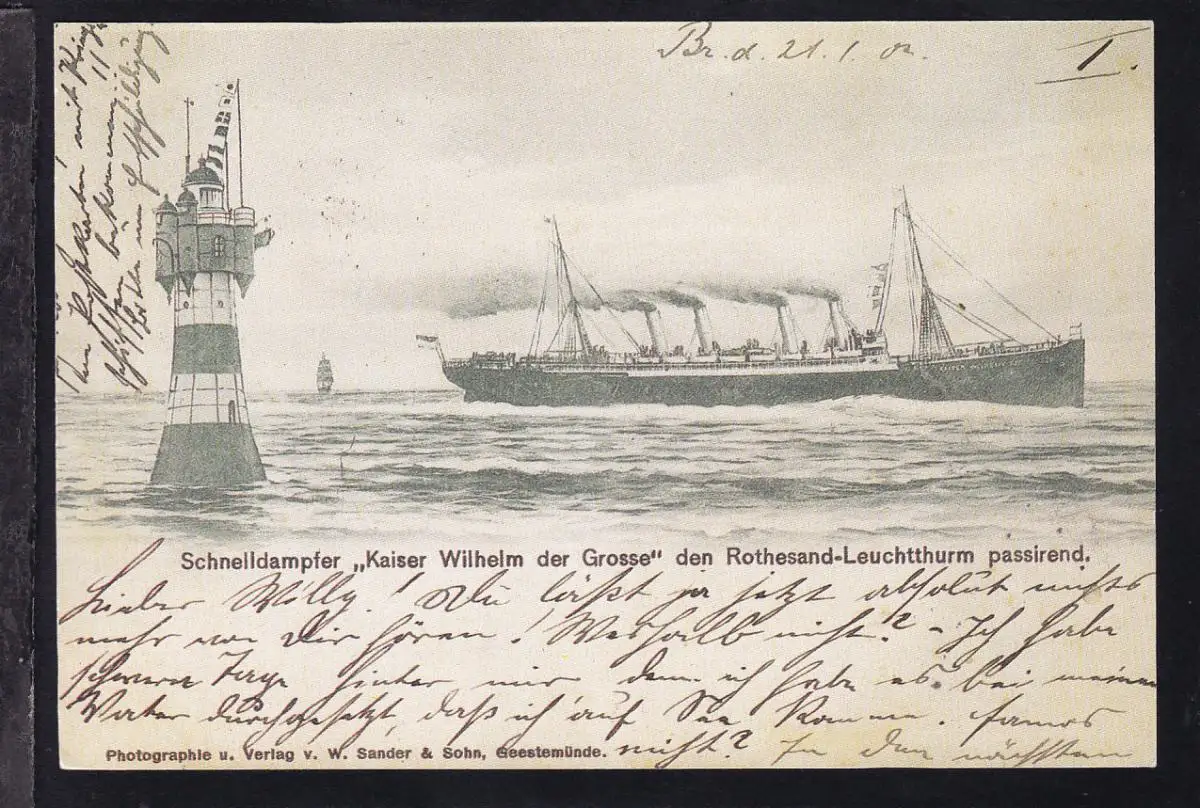 Br. d. 21. 1. 02.
I.
Schnelldampfer „Kaiser Wilhelm der Grosse" den Rothesand-Leuchtthurm passirend.
Lieber Willy! Du läßt ja jetzt absolut nichts
mehr von Dir hören! Weshalb nicht? – Ich habe
schwere Tage hinter mir denn ich habe es bei meinem
Vater durchgesetzt, daß ich auf See komme. Famos
nicht? In den nächsten
Photographie u. Verlag v. W. Sander & Sohn, Geestemünde.